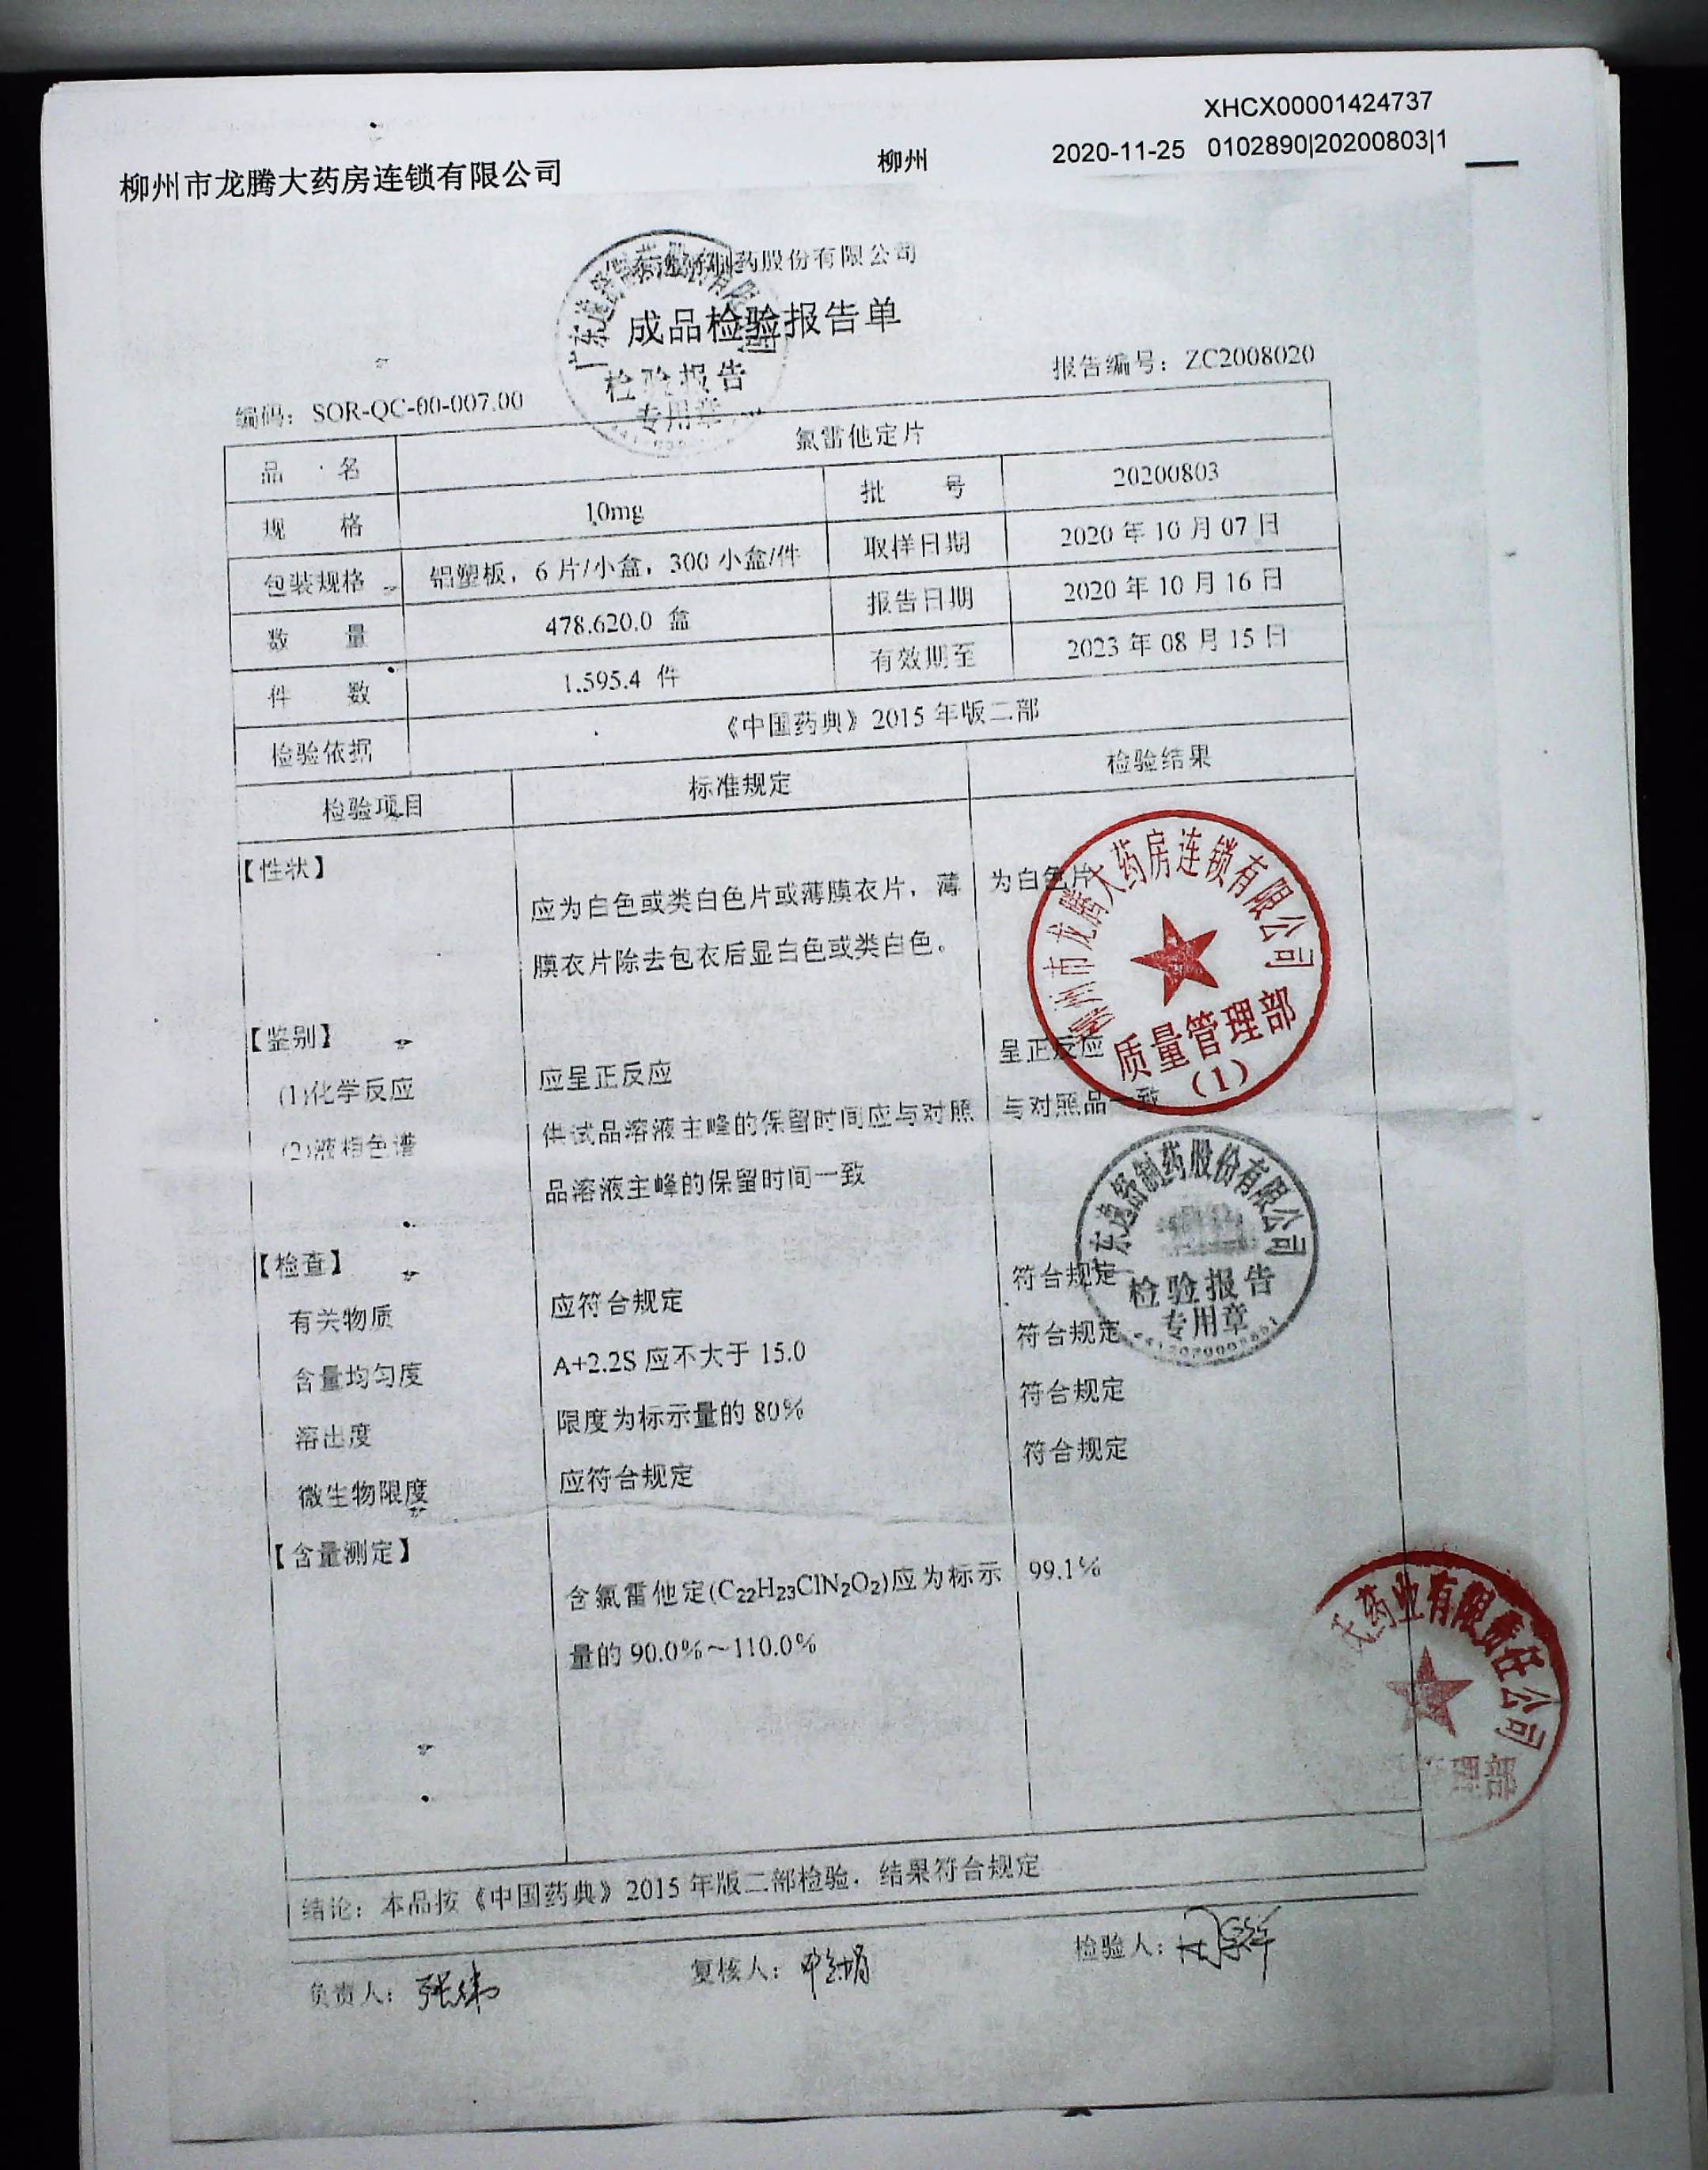 XHCX00001424737
柳州市龙腾大药房连锁有限公司 柳州 2020-11-25 0102890|20200803|1
制药股份有限公司
成品检验报告单
检验报告
专用章
编码：SOR-QC-00-007.00 报告编号：ZC2008020
品 名 氯雷他定片
规 格 10mg 批 号 20200803
包装规格 铝塑板，6 片/小盒，300 小盒/件 取样日期 2020 年 10 月 07 日
数 量 478.620.0 盒 报告日期 2020 年 10 月 16 日
件 数 1.595.4 件 有效期至 2023 年 08 月 15 日
检验依据 《中国药典》2015 年版二部
检验项目 标准规定 检验结果
【性状】
应为白色或类白色片或薄膜衣片，薄 为白色片
膜衣片除去包衣后显白色或类白色。
柳州市龙腾大药房连锁有限公司
质量管理部
(1)
【鉴别】
(1)化学反应 应呈正反应 呈正反应
(2)液相色谱 供试品溶液主峰的保留时间应与对照 与对照品一致
品溶液主峰的保留时间一致
东逸舒制药股份有限公司
检验报告
专用章
【检查】
有关物质 应符合规定 符合规定
含量均匀度 A+2.2S 应不大于 15.0 符合规定
溶出度 限度为标示量的 80% 符合规定
微生物限度 应符合规定 符合规定
【含量测定】
含氯雷他定(C₂₂H₂₃ClN₂O₂)应为标示 99.1%
量的 90.0%～110.0%
药业有限责任公司
理部
结论：本品按《中国药典》2015 年版二部检验．结果符合规定
负责人：张伟 复核人： 检验人：